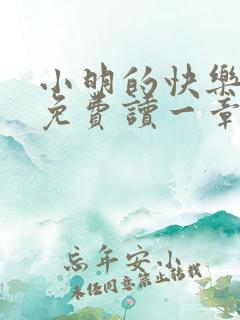 小明的快樂
免費讀一章
忘年安小
未经同意禁止转载